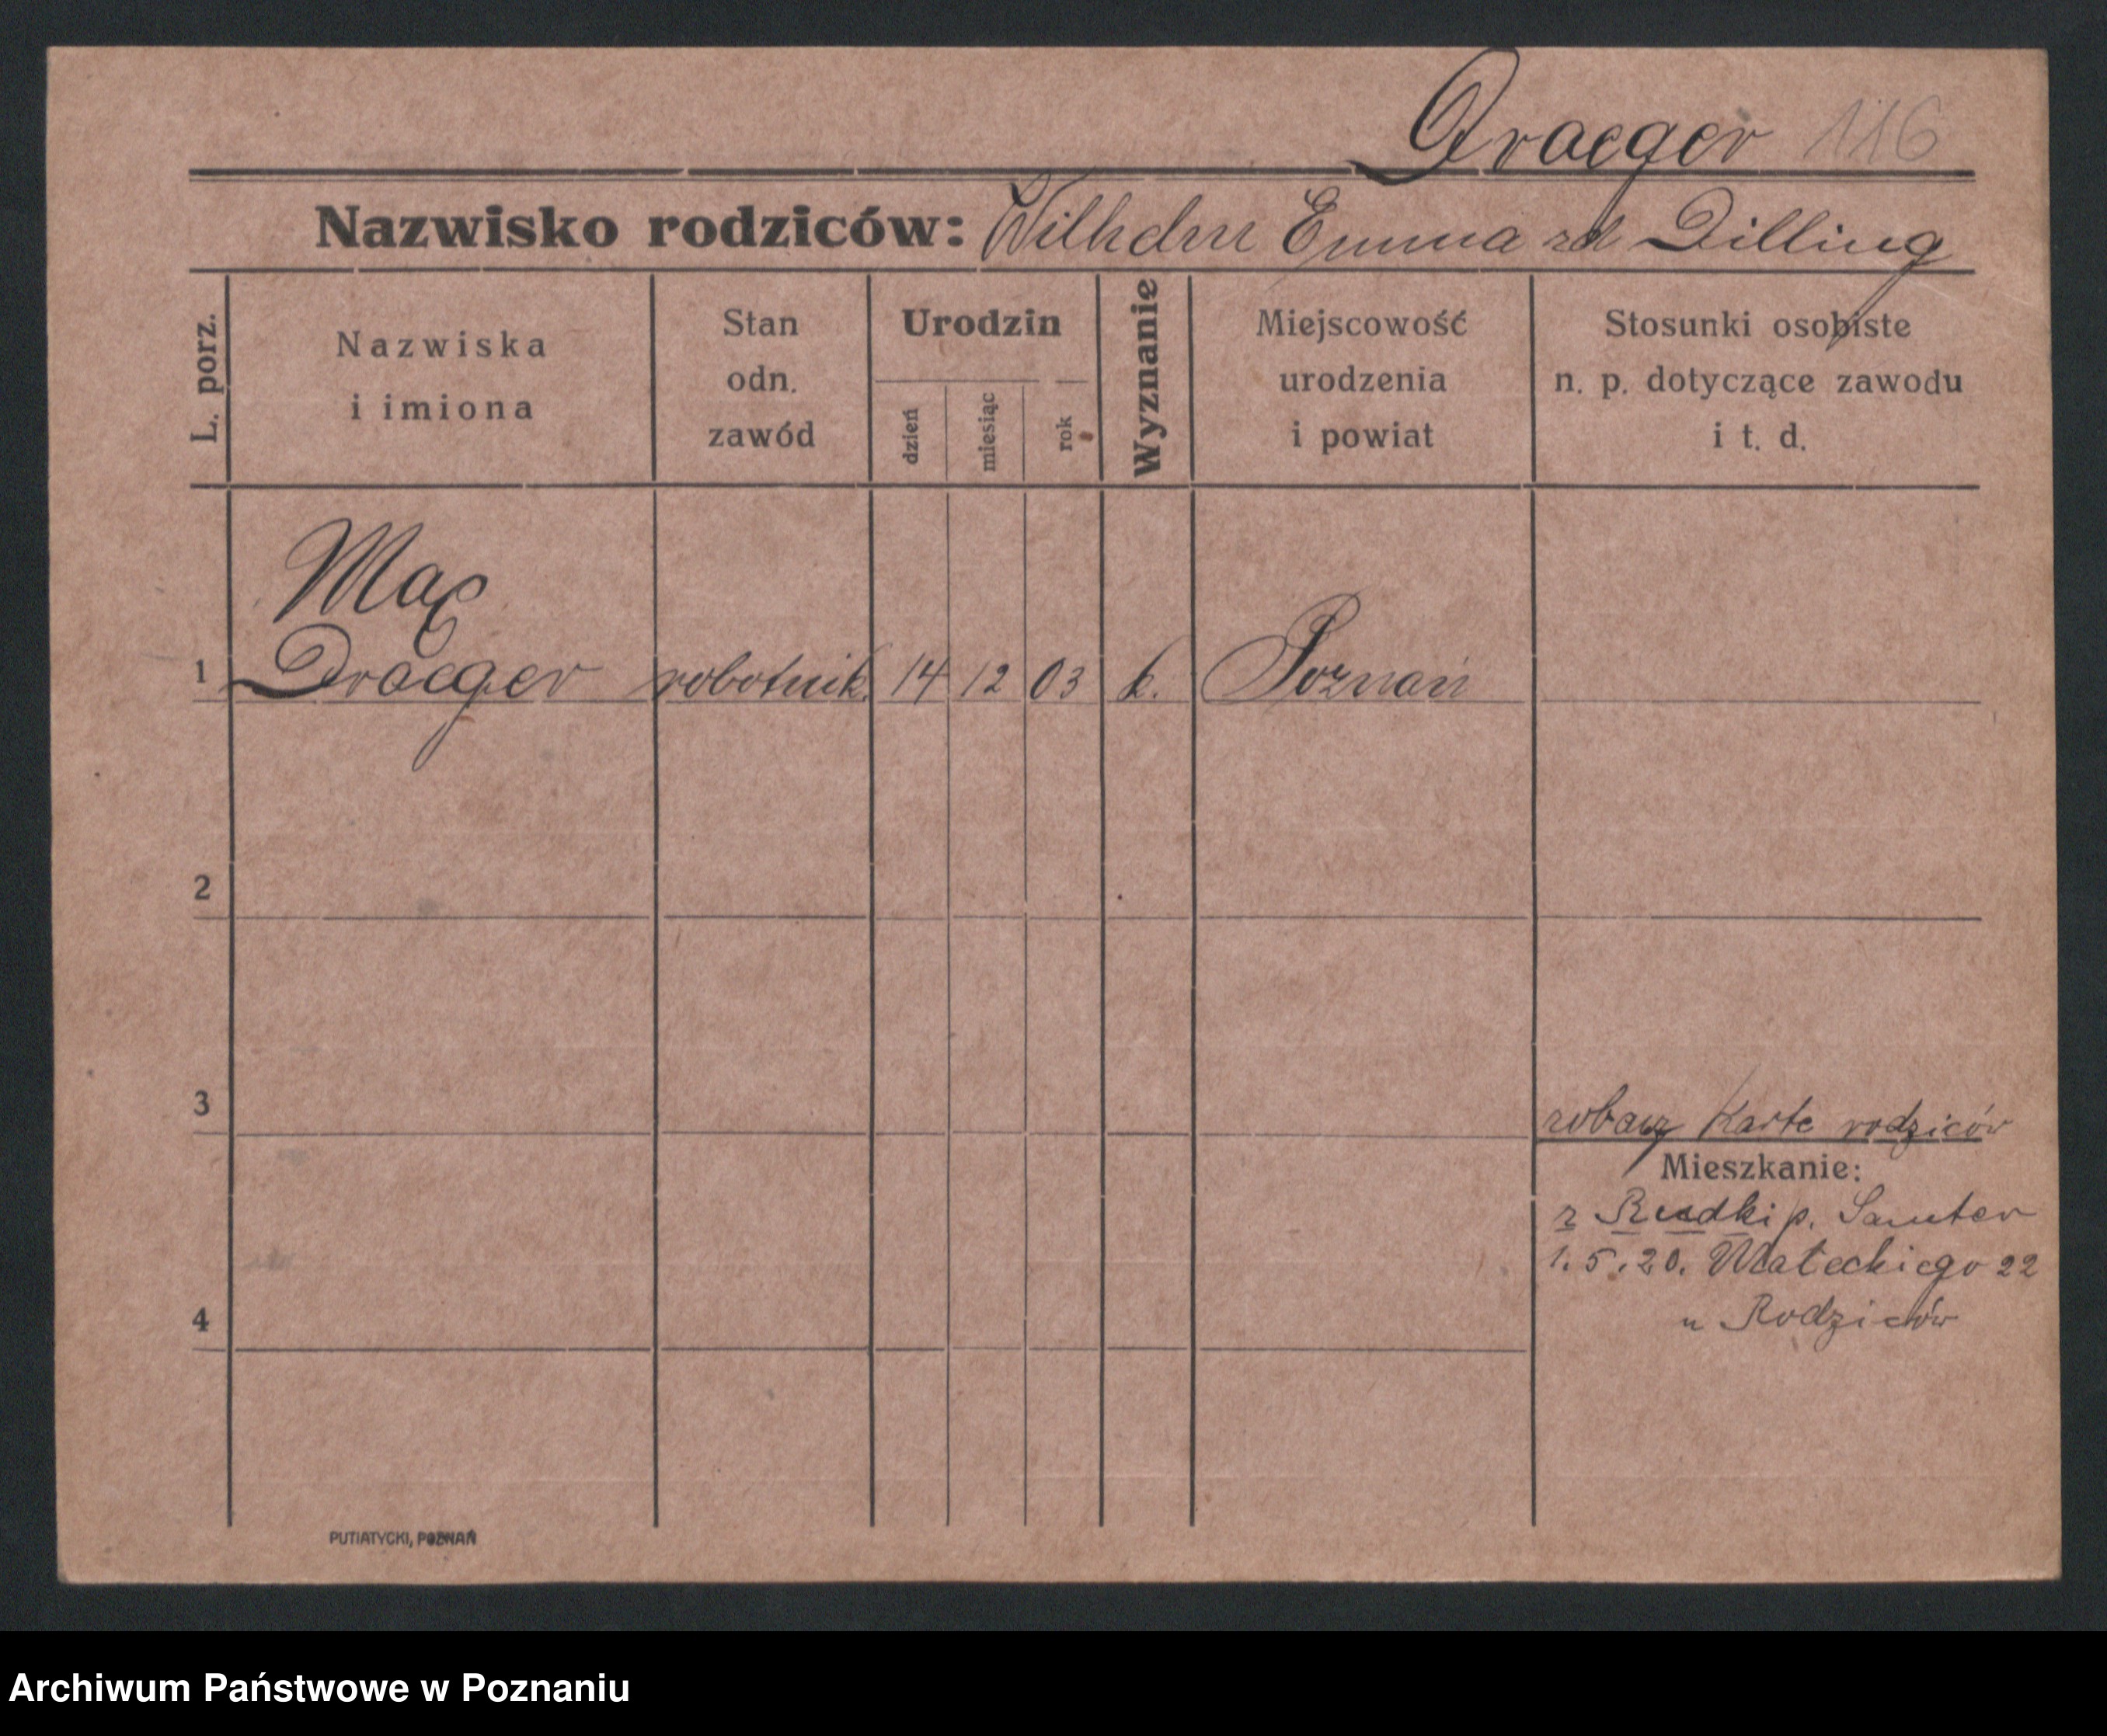 Draeger 116
Nazwisko rodziców: Wilhelm Emma zd Dilling
L. porz.
Nazwiska
i imiona
Stan
odn.
zawód
Urodzin
dzień
miesiąc
rok
Wyznanie
Miejscowość
urodzenia
i powiat
Stosunki osobiste
n. p. dotyczące zawodu
i t. d.
Max
1 Draeger robotnik. 14 12 03 k. Poznań
2
3
zobacz Karte rodziców
Mieszkanie:
z Rudki p. Samter
1.5.20. Małeckiego 22
4
u Rodziców
PUTIATYCKI, POZNAŃ
Archiwum Państwowe w Poznaniu